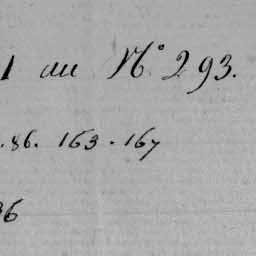 1 au N° 293.
. 86. 163 . 167
36